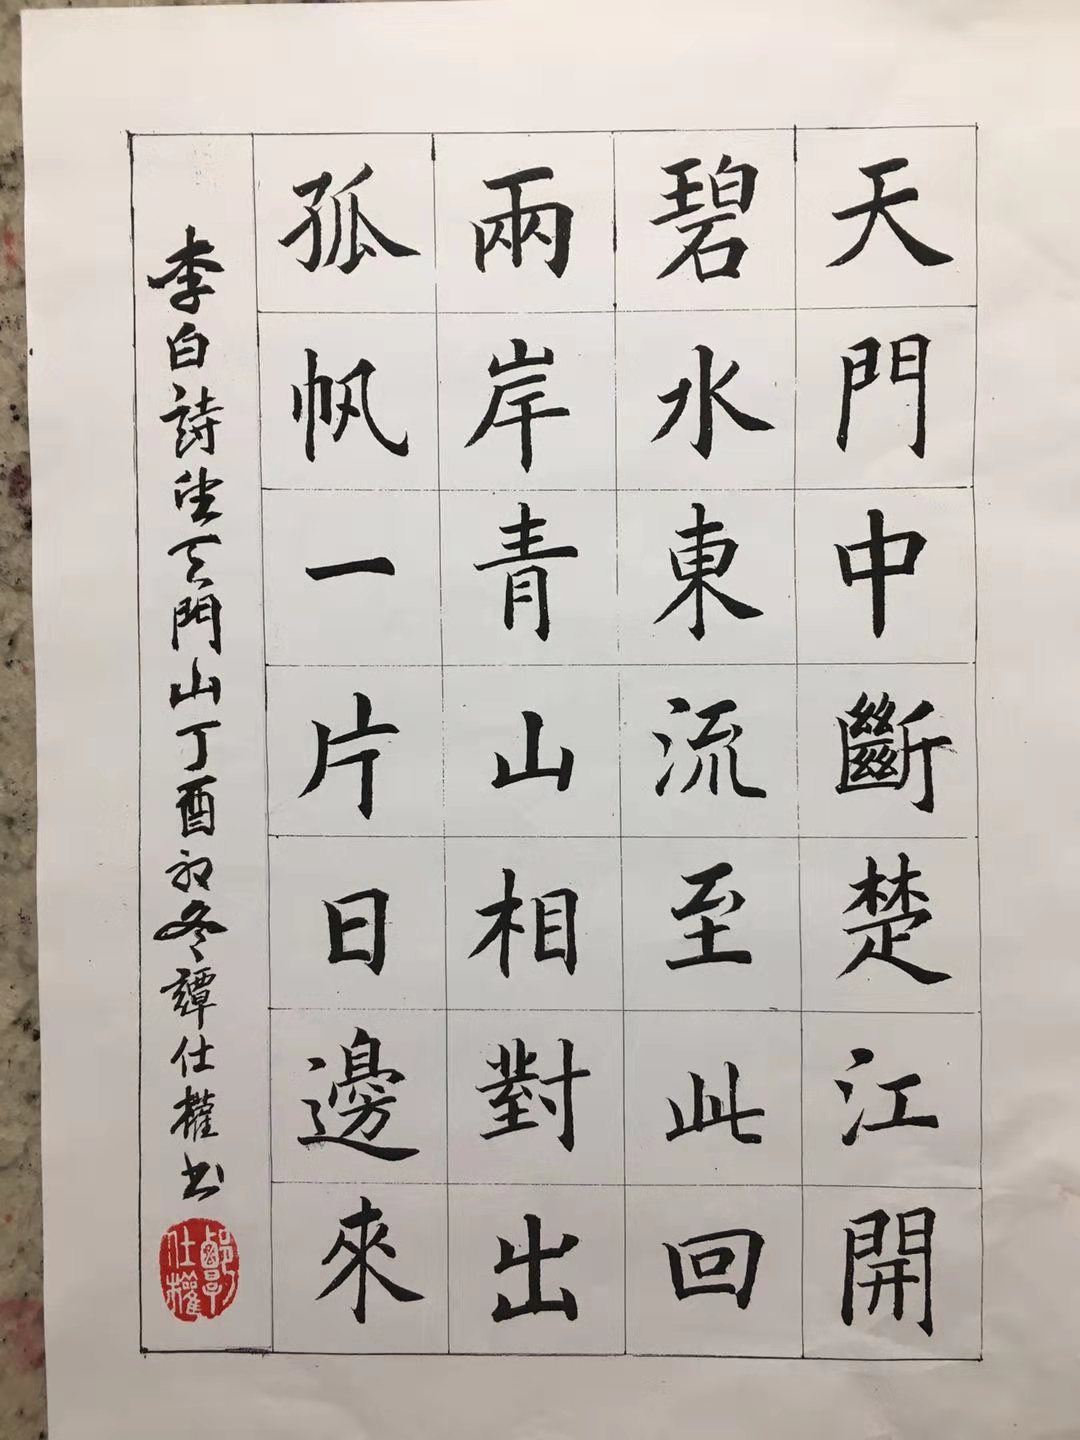 天門中斷楚江開
碧水東流至此回
兩岸青山相對出
孤帆一片日邊來
李白詩望天門山丁酉初冬譚仕權书
譚仕權